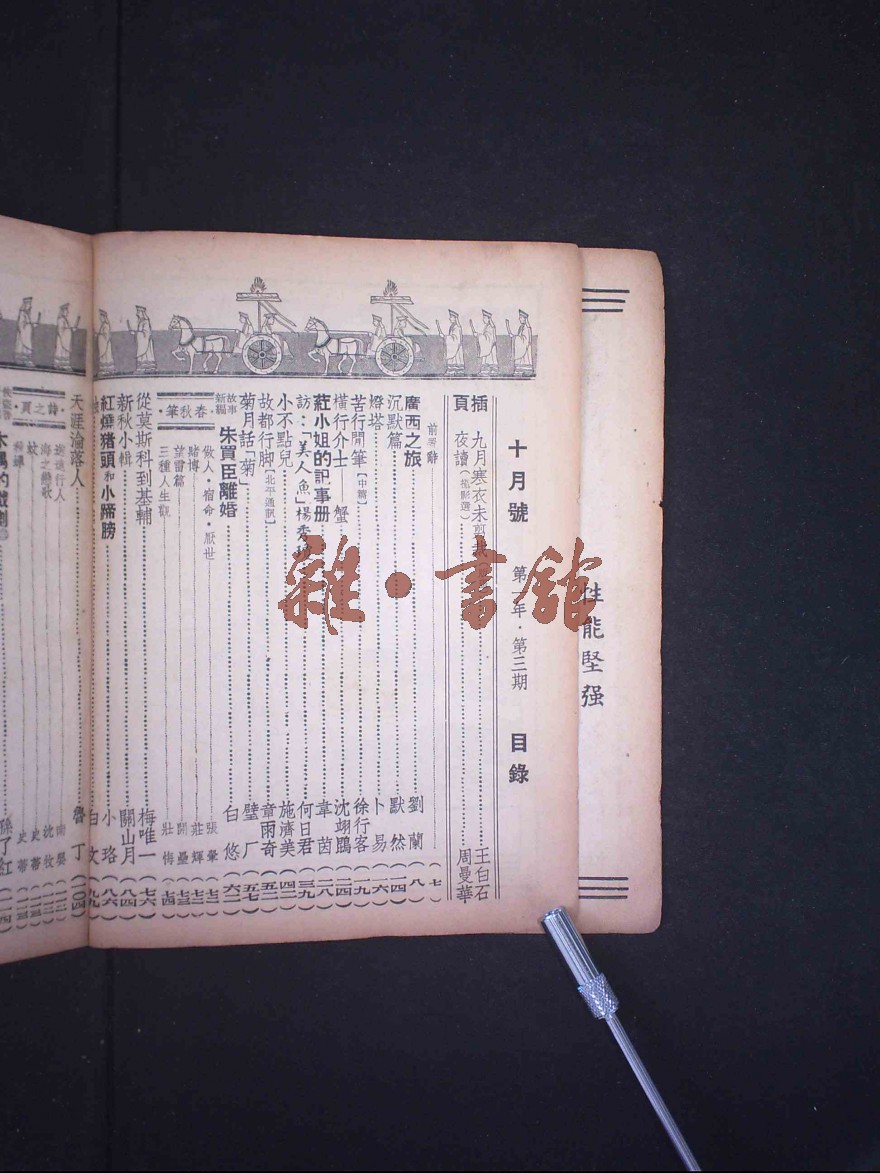 性能堅强
十月號 第一年·第三期 目錄
插頁
九月寒衣未剪裁 王白石
夜讀(攝影選) 周曼華
前奏辭 (七)
廣西之旅 劉蘭 (八)
沉默篇 默然 (一四)
燈塔 卜易 (一六)
苦行閒筆【中篇】 徐行客 (一九)
橫行介士——蟹 沈翊鵾 (二四)
莊小姐的記事册 韋茵 (二八)
訪:「美人魚」楊秀 何日君 (三九)
小不點兒 施濟美 (四二)
故都行脚【北平通訊】 章雨奇 (五二)
菊月話「菊」 璧厂 (五七)
故事新編 朱買臣離婚 白悠 (六二)
·春秋筆·
做人·宿命·厭世 張葦 (七二)
賭博 莊輝 (七三)
望雷篇 (七三)
三種人生觀 (七四)
從莫斯科到基輔 梅唯一 (七六)
新秋小輯 關山月 (八四)
紅燒猪頭和小蹄膀 小珞 (八六)
白文 (九九)
天涯淪落人 魯丁 (一〇四)
·詩之頁·
行人
海之戀歌 沈牧
蚊 史蒂
史蒂
木偶的戲劇 孫了紅
雜·書館